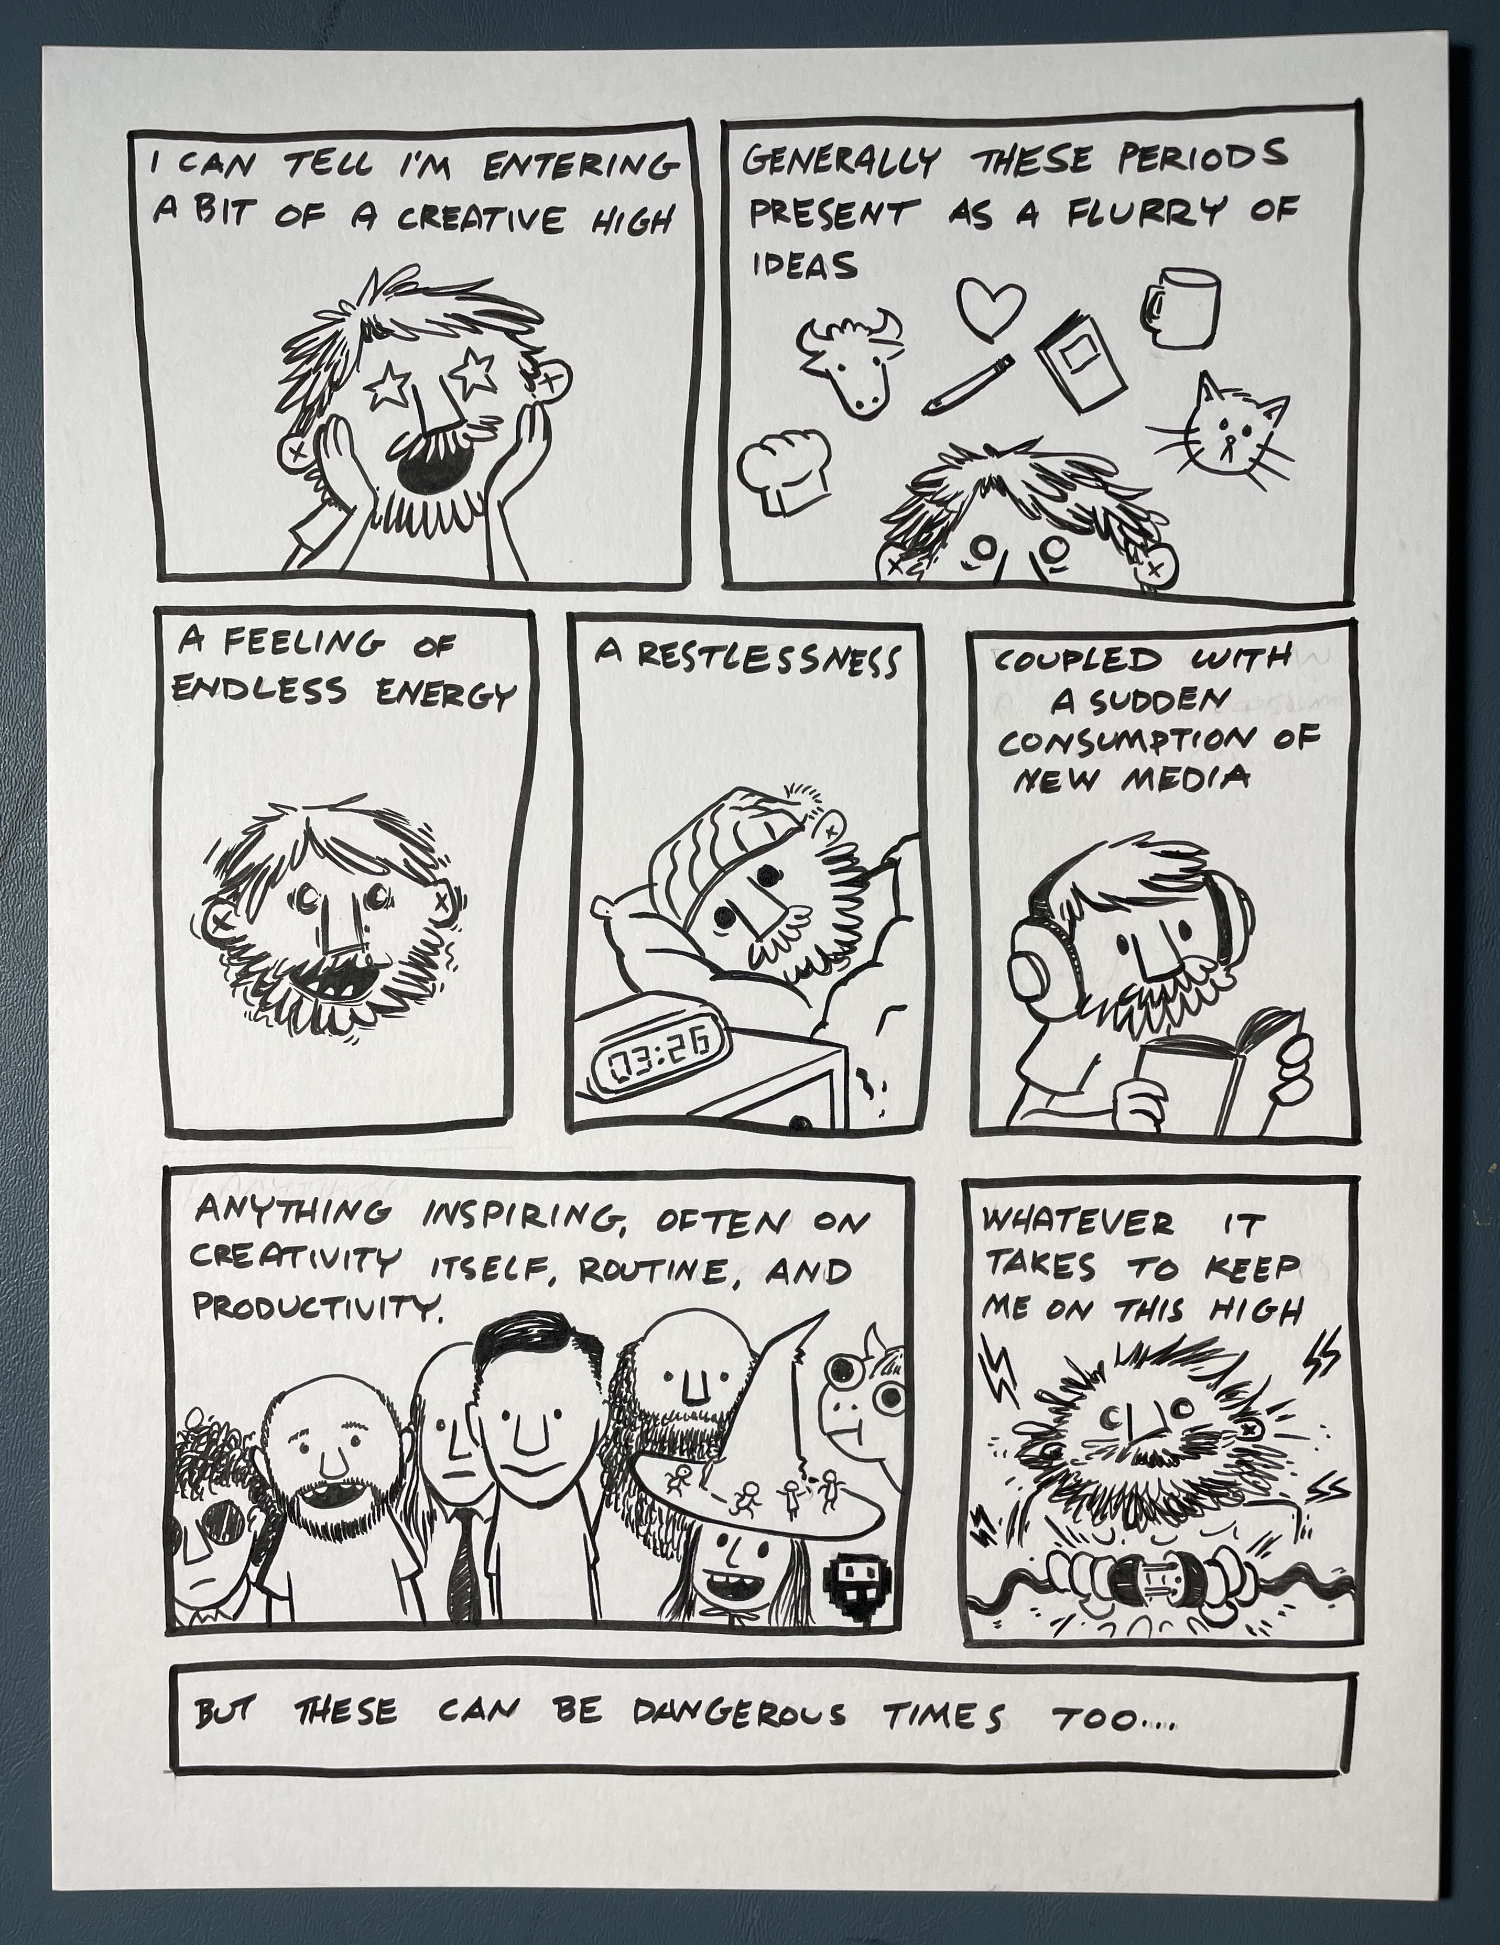 I CAN TELL I'M ENTERING
A BIT OF A CREATIVE HIGH
GENERALLY THESE PERIODS
PRESENT AS A FLURRY OF
IDEAS
A FEELING OF
ENDLESS ENERGY
A RESTLESSNESS
03:26
COUPLED WITH
A SUDDEN
CONSUMPTION OF
NEW MEDIA
ANYTHING INSPIRING, OFTEN ON
CREATIVITY ITSELF, ROUTINE, AND
PRODUCTIVITY.
WHATEVER IT
TAKES TO KEEP
ME ON THIS HIGH
BUT THESE CAN BE DANGEROUS TIMES TOO....